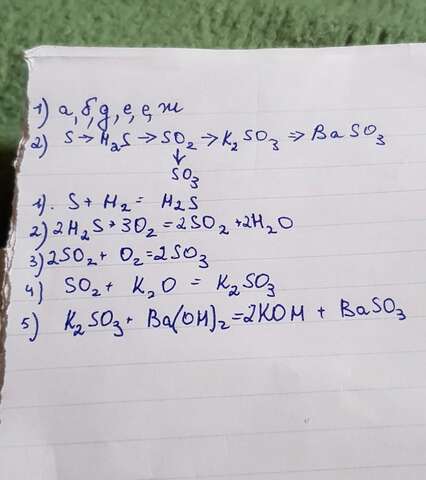 1) а, б, д, е, е, ж
2) S → H₂S → SO₂ → K₂SO₃ → BaSO₃
↓
SO₃
1). S + H₂ = H₂S
2) 2H₂S + 3O₂ = 2SO₂ + 2H₂O
3) 2SO₂ + O₂ = 2SO₃
4) SO₂ + K₂O = K₂SO₃
5) K₂SO₃ + Ba(OH)₂ = 2KOH + BaSO₃